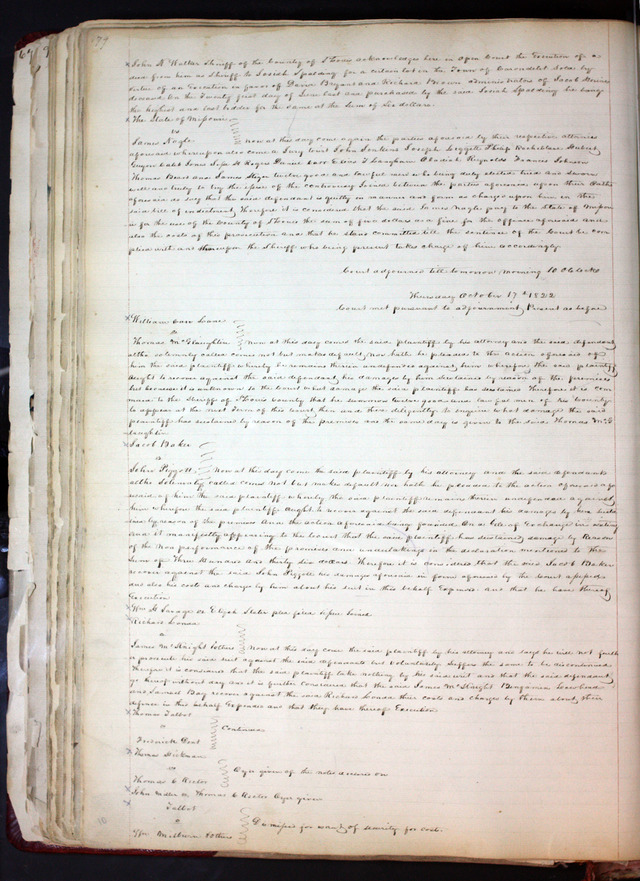 79
John K Walker Sheriff of the County of St Louis acknowledges here in open Court the Execution of a
deed from him as Sheriff to Josiah Spalding for a certain lot in the Town of Carondelet sold by
virtue of an Execution in favor of David Bryant and Richard Brown administrators of Jacob
deceased on the Twenty first day of June last and purchased by the said Josiah Spalding he being
the highest and last bidder for the same at the sum of six dollars.
The State of Missouri
vs
James Nagle now at this day come again the parties aforesaid by their respective attornies
aforesaid whereupon also come a Jury to wit John Joseph Leggett Philip Hubert
Guyon Calvit Jonas St Roger Daniel L Langham Obadiah Reynolds Francis Johnson
Thomas and James twelve good and lawful men who being duly elected tried and sworn
well and truly to try the issue of the controversy Joined between the parties aforesaid upon their oaths
aforesaid do say that the said defendant is guilty in manner and form as charged upon him in the
said bill of indictment Therefore it is considered that the said James Nagle pay to the State of Missouri
for the use of the County of St Louis the sum of five dollars as a fine for the offence aforesaid and
also the costs of this prosecution and that he stand committed till the sentence of the Court be com
plied with and thereupon the Sheriff who being present takes charge of him accordingly
Court adjourned till tomorrow morning 10 OClock
Thursday October 17th 1822
Court met pursuant to adjournment, Present as before
William Carr Lane
vs
Thomas McGlaughlin now at this day comes the said plaintiff by his attorney and the said defendant
altho solemnly called comes not but makes default, nor hath he pleaded to the action aforesaid of
him the said plaintiff whereby he remains therein undefended against him wherefore the said plaintiff
ought to recover against the said defendant, his damages by him sustained by reason of the premises
but because it is unknown to the Court what damage the said plaintiff has sustained Therefore it is com
manded to the Sheriff of St Louis County that he summon twelve good and lawful men of his County
to appear at the next Term of this Court then and there diligently to enquire what damage the said
plaintiff has sustained by reason of the premises and the same day is given to the said Thomas McG
laughlin
Jacob Baker
vs
John Piggott Now at this day come the said plaintiff by his attorney and the said defendant
altho Solemnly called comes not but makes default nor hath he pleaded to the action aforesaid
of him the said plaintiff whereby the said plaintiff remains therein undefended against
him wherefore the said plaintiff ought to recover against the said defendant his damages by him sustained
by reason of the premises And the action aforesaid being founded On a bill of Exchange in writing
And it manifestly appearing to the Court that the said plaintiff has sustained damage by Reason
of the Non performance of the promises and undertakings in the declaration mentioned to the
Sum of Three Hundred and thirty six dollars. Therefore it is considered, that the said Jacob Baker
recover against the said John Piggott his damages aforesaid in form aforesaid by the Court assessed
and also his costs and charges by him about his suit in this behalf Expended And that he have thereof
Execution
Wm H Savage vs Elijah plea filed & issue Joined
Richard Lonsda
vs
James McKnight & others Now at this day come the said plaintiff by his attorney and says he will not further
prosecute his said suit against the said defendants but voluntarily suffers the same to be discontinued
Therefore it is considered that the said plaintiff take nothing by his said writ and that the said defendants
go hereof without day and it is further considered that the said James McKnight Benjamin
and Samuel Bay recover against the said Richard Lonsda their costs and charges by them about their
defence in this behalf Expended and that they have thereof Execution
Thomas Talbot
vs Continued
Fredrick Dent
Thomas Hickman
vs Oyer given of the note declared on
Thomas C Rector
John vs Thomas C Rector Oyer given
Talbot
vs Dismissed for want of security for costs.
& others